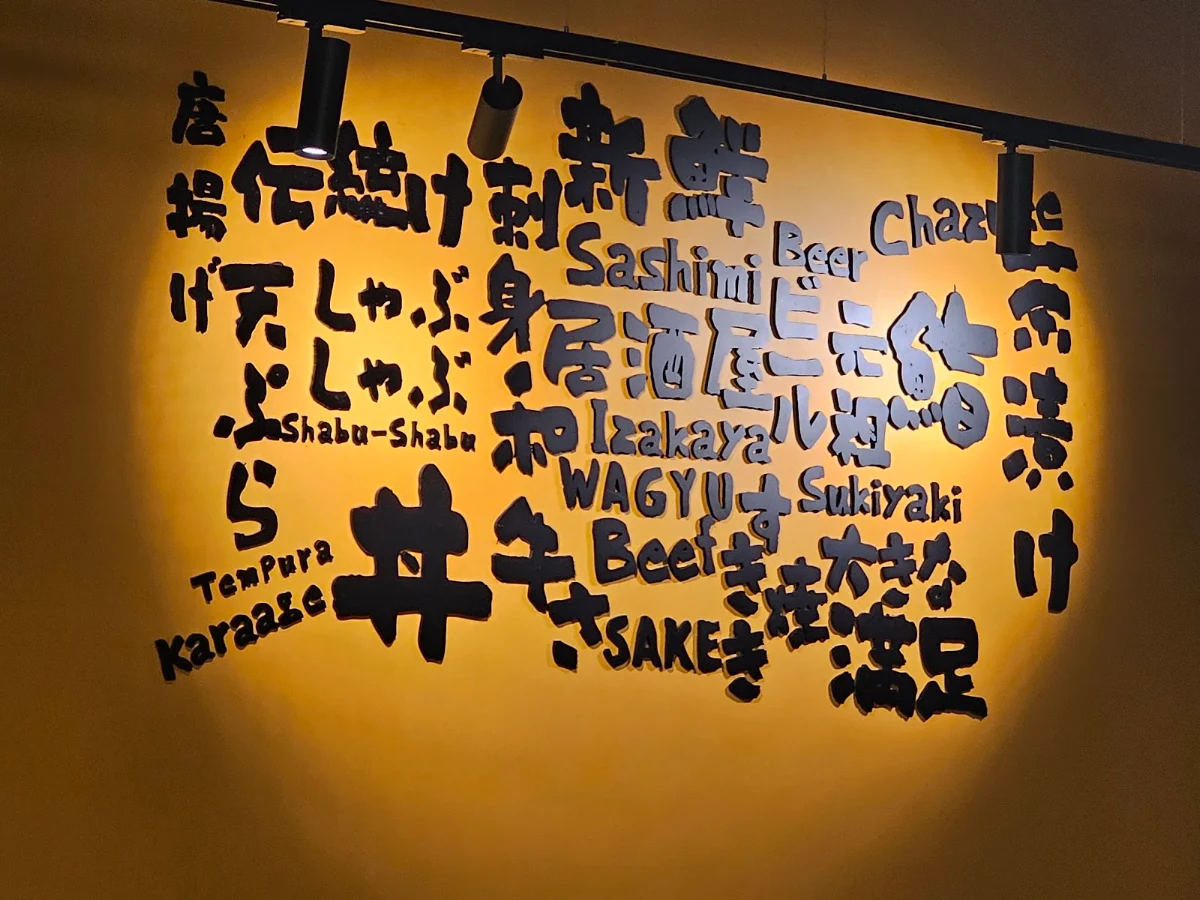 唐揚げ
伝統
け
天ぷら
しゃぶ
しゃぶ
Shabu-Shabu
Tempura
Karaage
丼
刺身
・
和牛
さ
新鮮
Sashimi
居酒屋
Izakaya
WAGYU
Beef
SAKE
Beer
ビール
元祖
Sukiyaki
すき
焼
き
大きな
満足
茶漬け